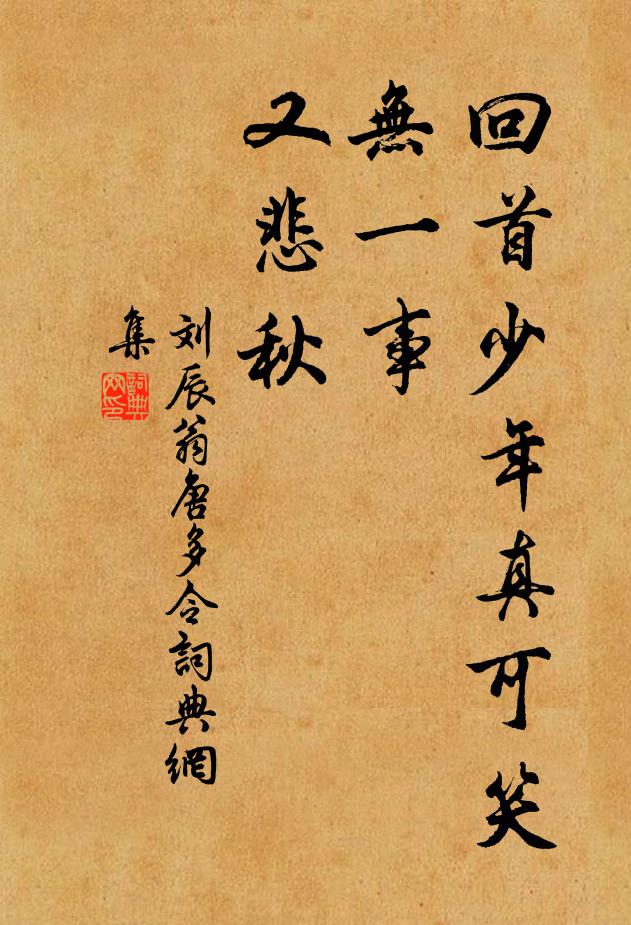 回首少年真可笑
無一事
又悲秋
刘辰翁唐多令詞典網
集
詞典
网印